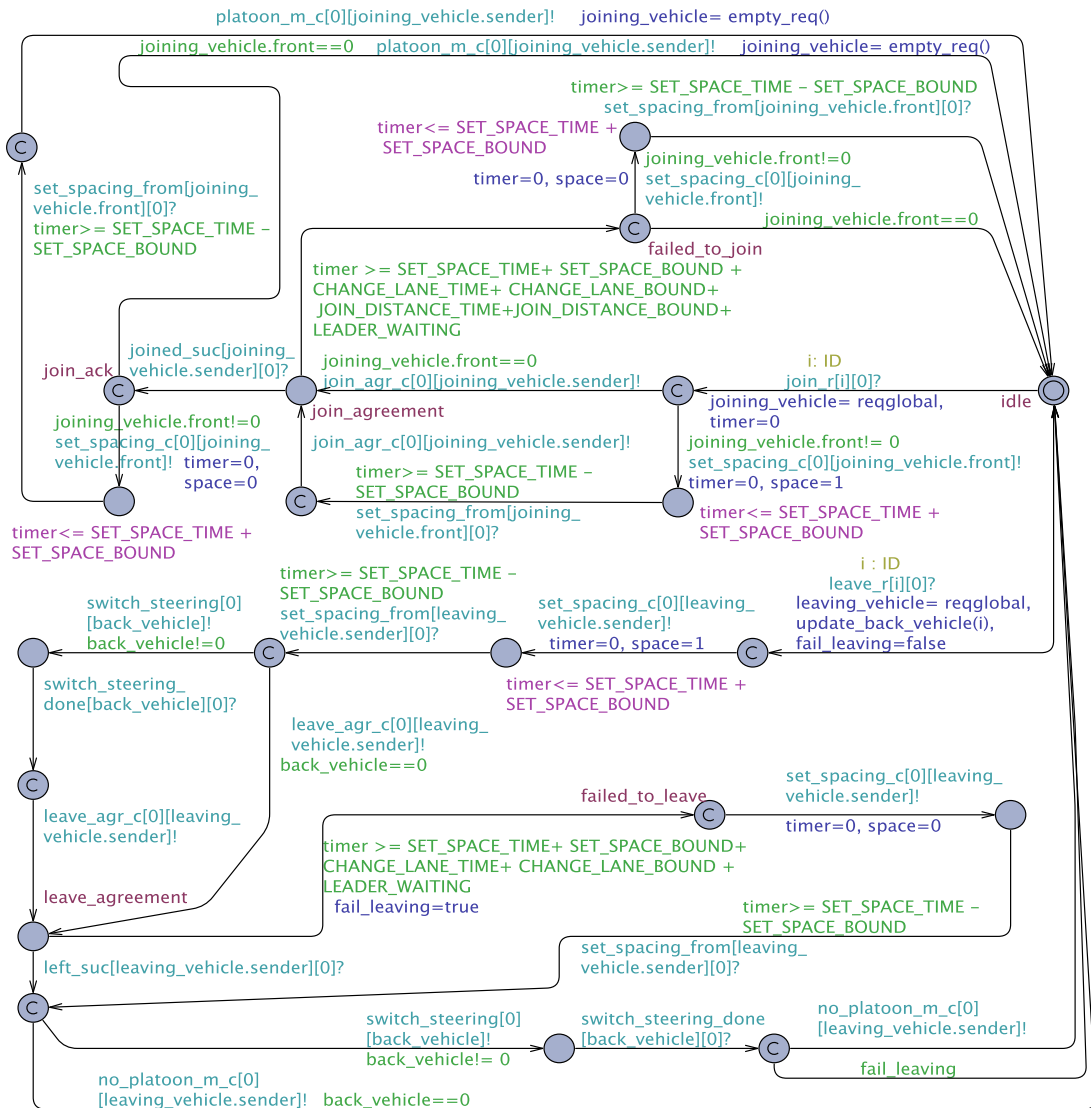 platoon_m_c[0][joining_vehicle.sender]! joining_vehicle= empty_req()
joining_vehicle.front==0 platoon_m_c[0][joining_vehicle.sender]! joining_vehicle= empty_req()
timer>= SET_SPACE_TIME - SET_SPACE_BOUND
set_spacing_from[joining_vehicle.front][0]?
timer<= SET_SPACE_TIME +
SET_SPACE_BOUND
C
joining_vehicle.front!=0
timer=0, space=0
set_spacing_c[0][joining_
vehicle.front]!
set_spacing_from[joining_
vehicle.front][0]?
timer>= SET_SPACE_TIME -
SET_SPACE_BOUND
C
joining_vehicle.front==0
failed_to_join
timer >= SET_SPACE_TIME+ SET_SPACE_BOUND +
CHANGE_LANE_TIME+ CHANGE_LANE_BOUND+
JOIN_DISTANCE_TIME+JOIN_DISTANCE_BOUND+
LEADER_WAITING
joined_suc[joining_
vehicle.sender][0]?
join_ack
C
joining_vehicle.front==0
join_agr_c[0][joining_vehicle.sender]!
C
i: ID
join_r[i][0]?
joining_vehicle= reqglobal,
timer=0
idle
join_agreement
joining_vehicle.front!=0
set_spacing_c[0][joining_
vehicle.front]! timer=0,
space=0
join_agr_c[0][joining_vehicle.sender]!
joining_vehicle.front!= 0
set_spacing_c[0][joining_vehicle.front]!
timer=0, space=1
timer>= SET_SPACE_TIME -
SET_SPACE_BOUND
C
set_spacing_from[joining_
vehicle.front][0]?
timer<= SET_SPACE_TIME +
SET_SPACE_BOUND
timer<= SET_SPACE_TIME +
SET_SPACE_BOUND
i : ID
leave_r[i][0]?
leaving_vehicle= reqglobal,
update_back_vehicle(i),
fail_leaving=false
timer>= SET_SPACE_TIME -
SET_SPACE_BOUND
set_spacing_from[leaving_
vehicle.sender][0]?
set_spacing_c[0][leaving_
vehicle.sender]!
timer=0, space=1
C
switch_steering[0]
[back_vehicle]!
back_vehicle!=0
C
timer<= SET_SPACE_TIME +
SET_SPACE_BOUND
switch_steering_
done[back_vehicle][0]?
leave_agr_c[0][leaving_
vehicle.sender]!
back_vehicle==0
C
leave_agr_c[0][leaving_
vehicle.sender]!
failed_to_leave
C
set_spacing_c[0][leaving_
vehicle.sender]!
timer=0, space=0
timer >= SET_SPACE_TIME+ SET_SPACE_BOUND+
CHANGE_LANE_TIME+ CHANGE_LANE_BOUND +
LEADER_WAITING
fail_leaving=true
leave_agreement
timer>= SET_SPACE_TIME -
SET_SPACE_BOUND
set_spacing_from[leaving_
vehicle.sender][0]?
left_suc[leaving_vehicle.sender][0]?
C
switch_steering[0]
[back_vehicle]!
back_vehicle!= 0
switch_steering_done
[back_vehicle][0]?
C
no_platoon_m_c[0]
[leaving_vehicle.sender]!
fail_leaving
no_platoon_m_c[0]
[leaving_vehicle.sender]! back_vehicle==0